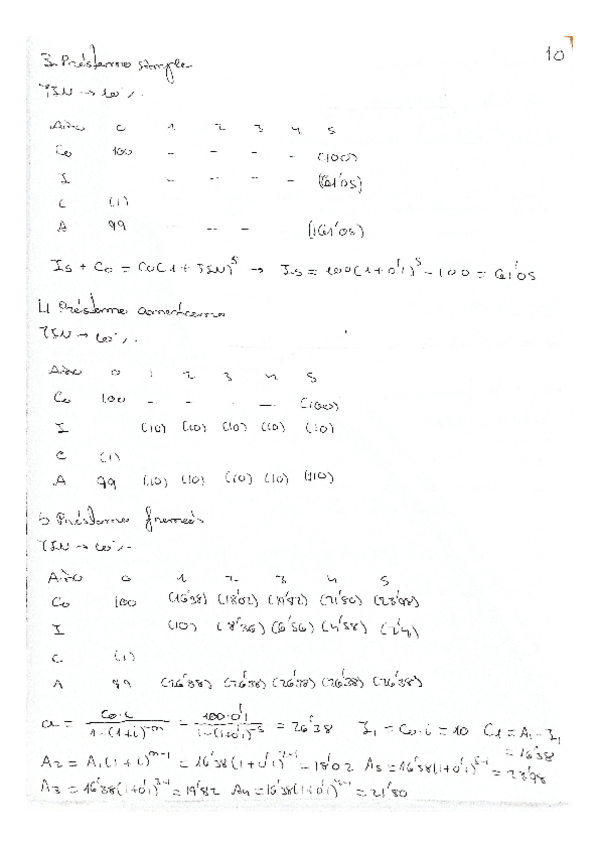 10
3. Préstamo simple
TIN → 10%.
Año 0 1 2 3 4 5
Co 100 - - - - (100)
I - - - - (61'05)
C (1)
A 99 -- - (161'05)
I5 + Co = Co(1+TIN)^5 → I5 = 100(1+0'1)^5 - 100 = 61'05
4 Préstamo americano
TIN → 10%.
Año 0 1 2 3 4 5
Co 100 - - - - (100)
I (10) (10) (10) (10) (10)
C (1)
A 99 (10) (10) (10) (10) (110)
5 Préstamo francés
TIN → 10%.
Año 0 1 2 3 4 5
Co 100 (16'38) (18'02) (19'82) (21'80) (23'98)
I (10) (8'36) (6'56) (4'58) (2'4)
C (1)
A 99 (26'38) (26'38) (26'38) (26'38) (26'38)
a = Co·i / 1-(1+i)^-n = 100·0'1 / 1-(1+0'1)^-5 = 26'38 I1 = Co·i = 10 C1 = A1 - I1 = 16'38
A2 = A1(1+i)^n-1 = 16'38(1+0'1)^2-1 = 18'02 A5 = 16'38(1+0'1)^5-1 = 23'98
A3 = 16'38(1+0'1)^3-1 = 19'82 A4 = 16'38(1+0'1)^4-1 = 21'80